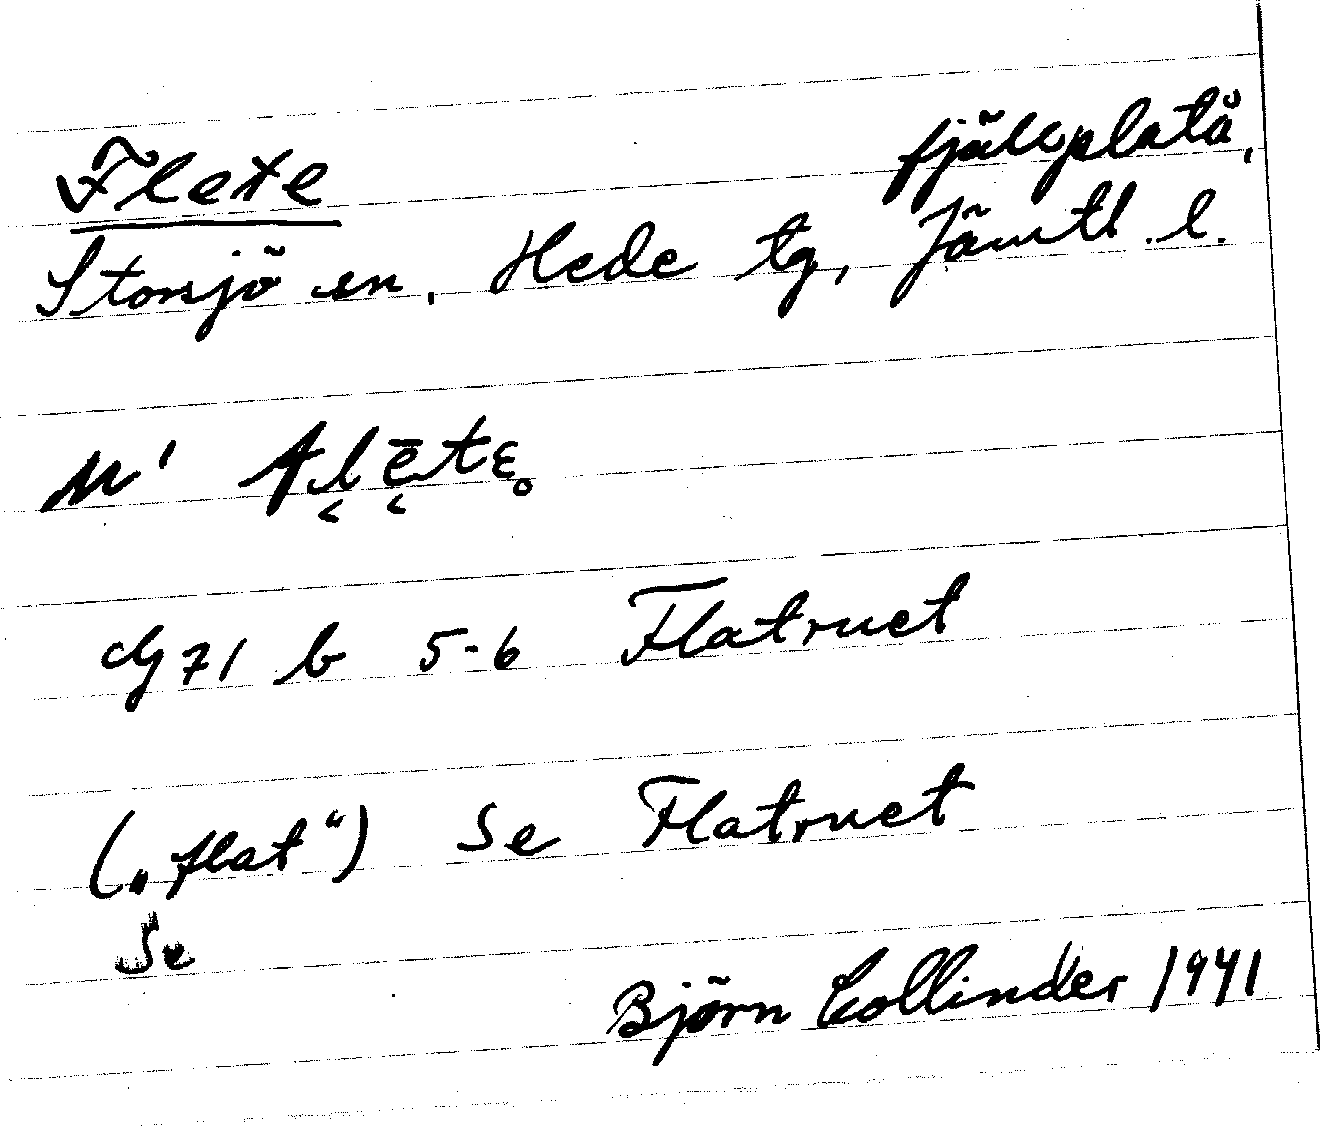 Flete fjällplatå,
Storsjö sn, Hede tg, Jämtl. l.
flētε
71 b 5-6 Flatruet
(„flat“) Se Flatruet
Se
Björn Collinder 1941